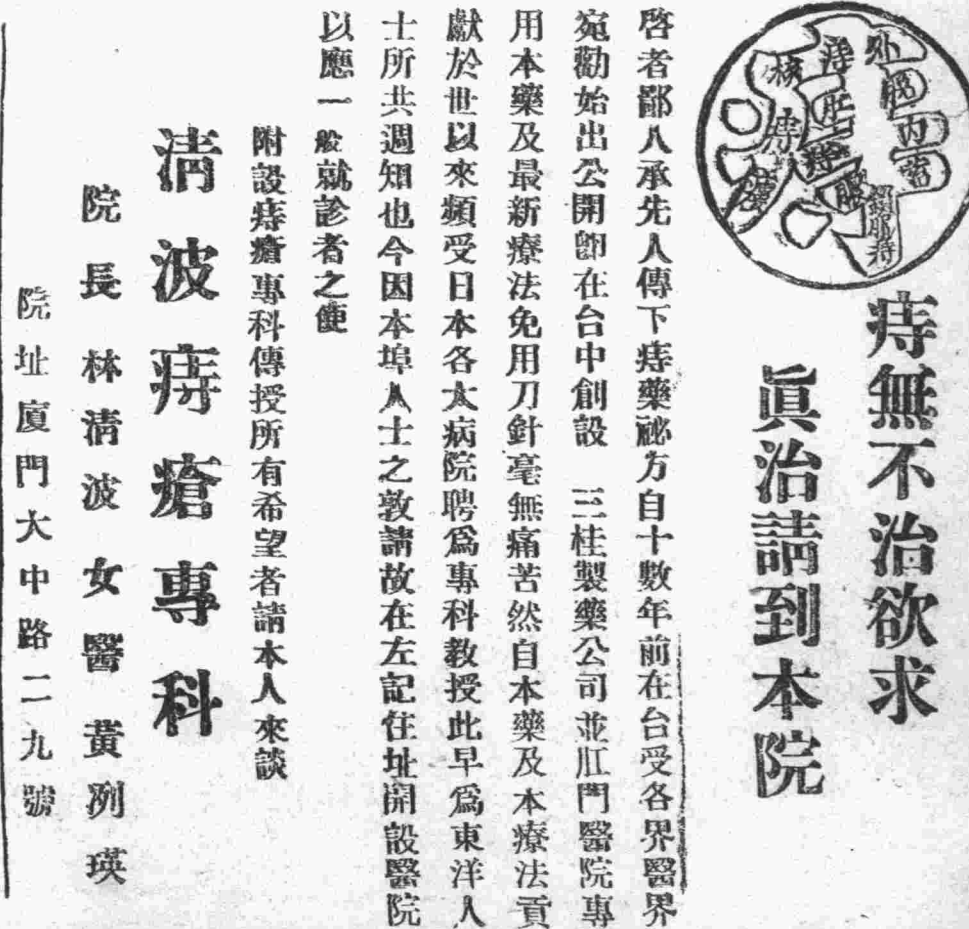 痔無不治欲求
眞治請到本院
啓者鄙人承先人傳下痔藥祕方自十數年前在台受各界醫界
宛勸始出公開卽在台中創設 三桂製藥公司並肛門醫院專
用本藥及最新療法免用刀針毫無痛苦然自本藥及本療法貢
獻於世以來頻受日本各大病院聘爲專科教授此早爲東洋人
士所共週知也今因本埠人士之敦請故在左記住址開設醫院
以應一般就診者之便
附設痔瘡專科傳授所有希望者請本人來談
淸波痔瘡專科
院長林淸波女醫黃冽瑛
院址廈門大中路二九號